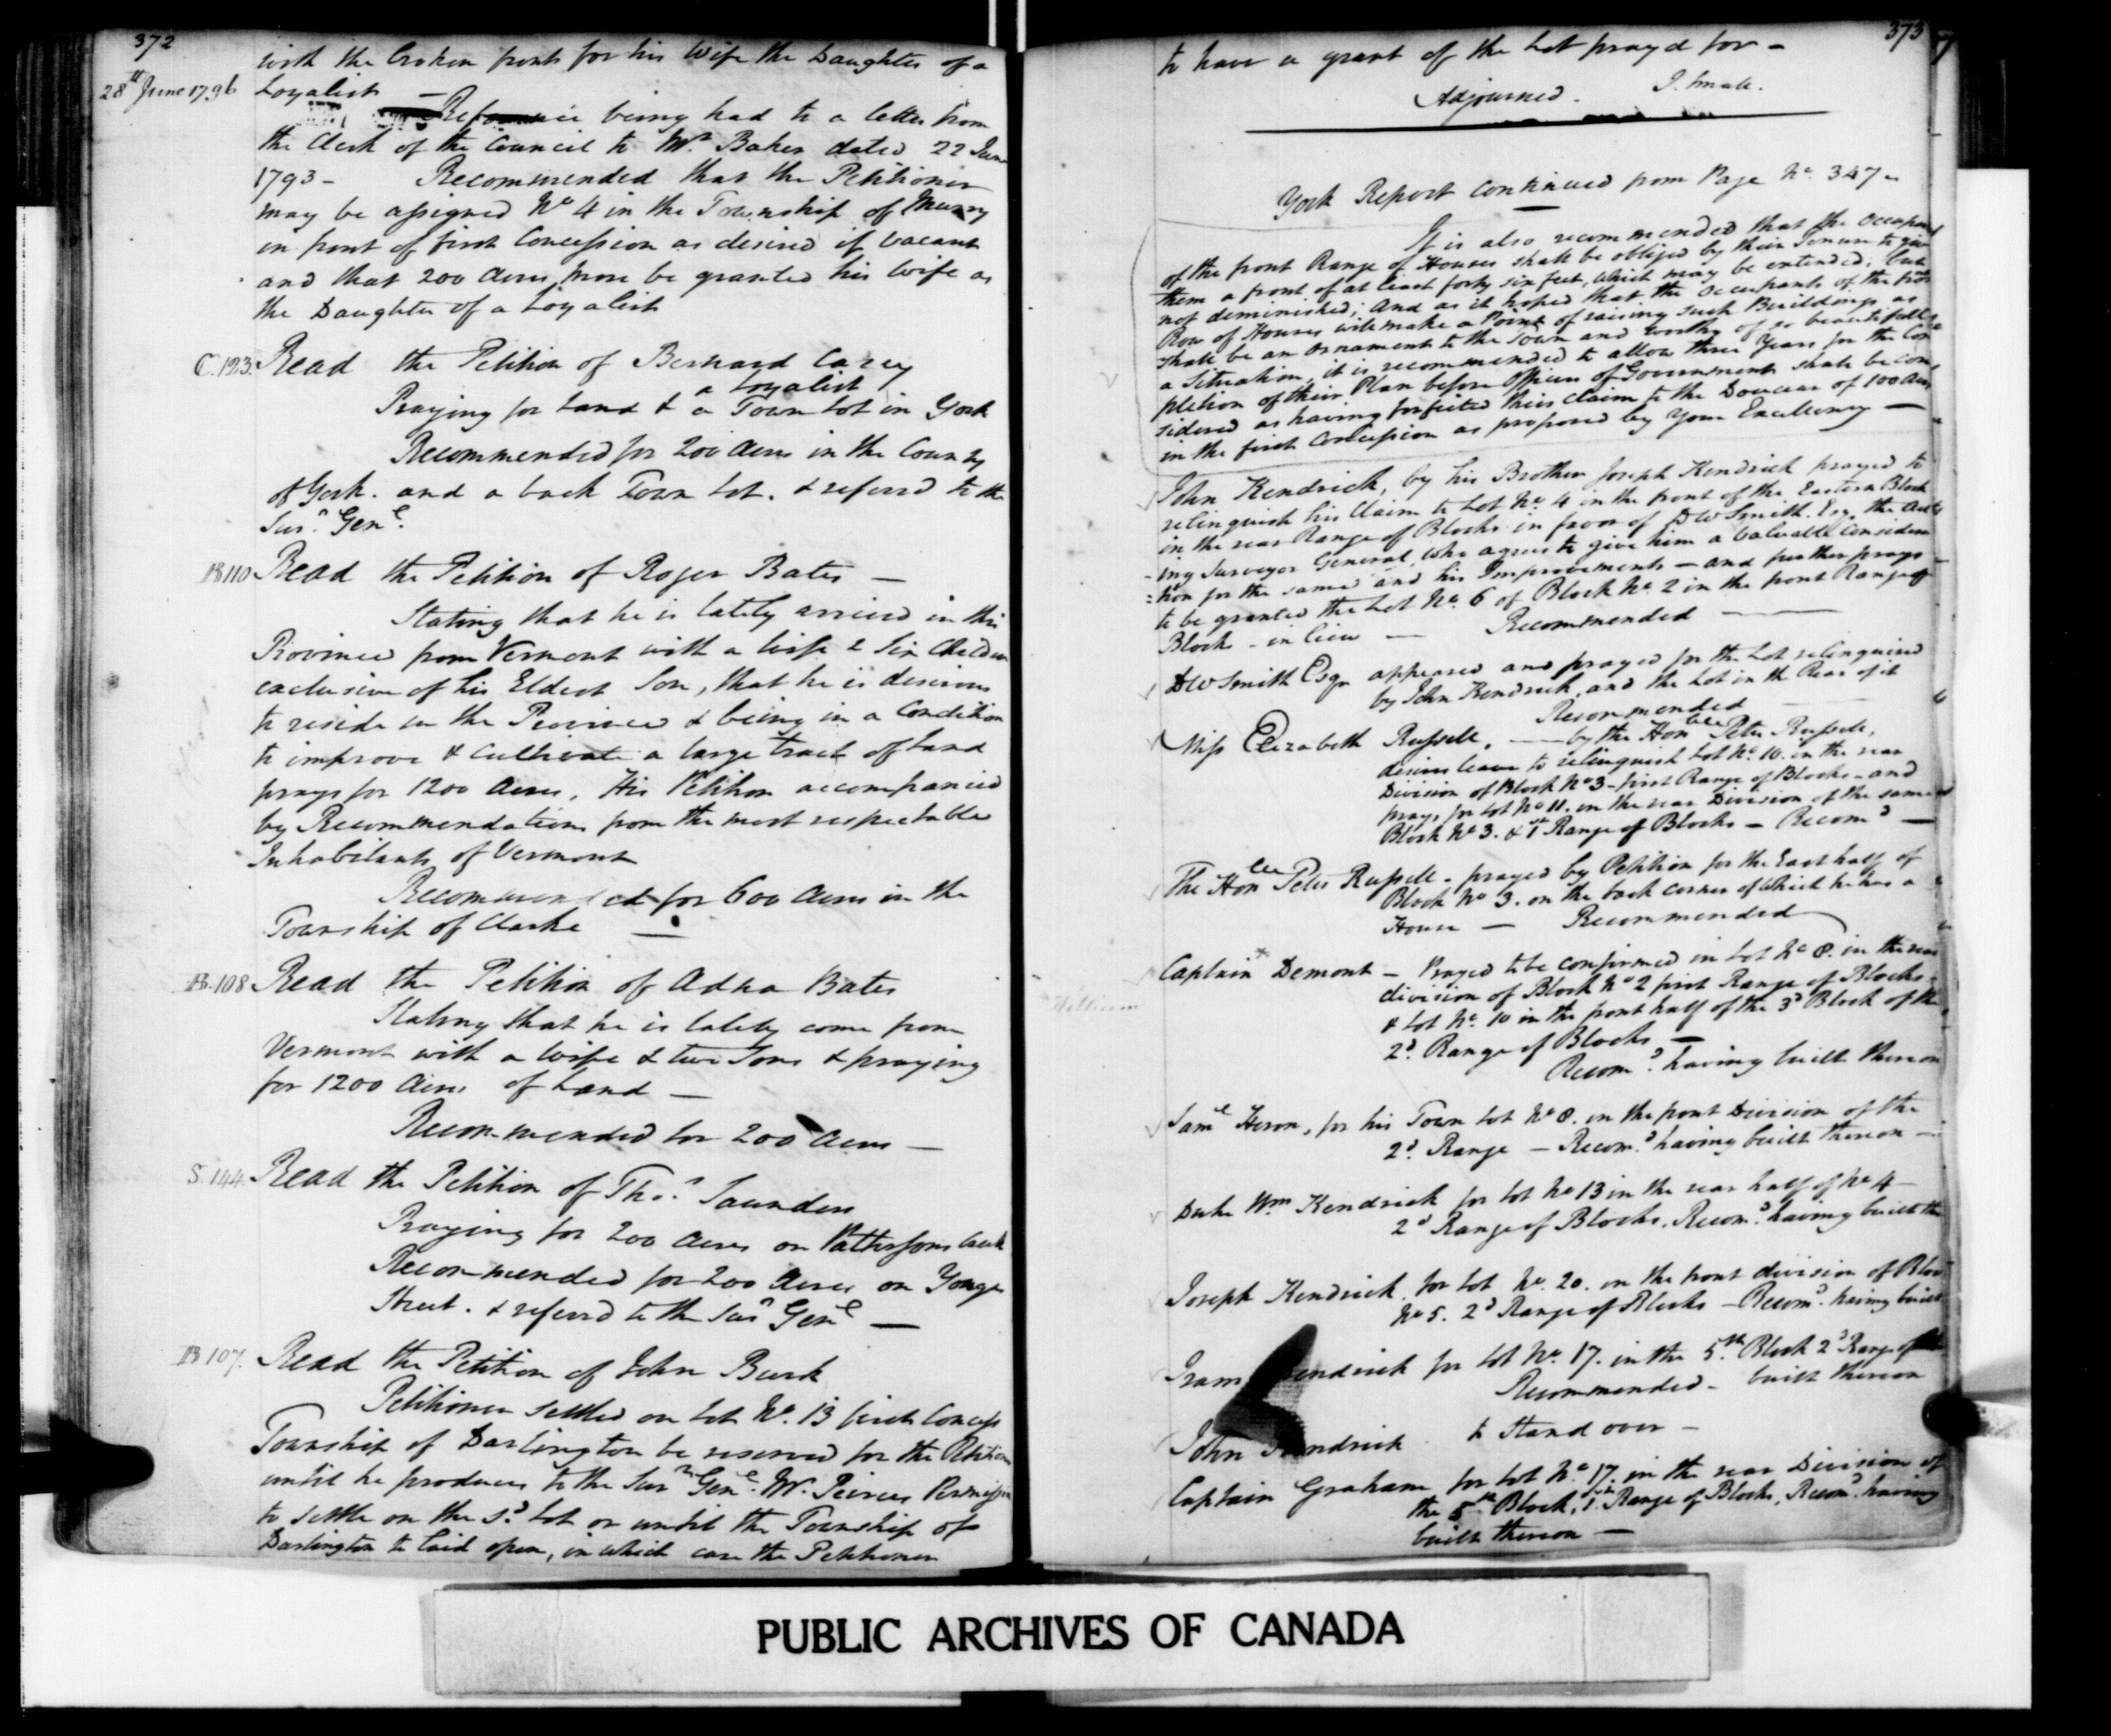 372
28th June 1796
with the broken front for his Wife the Daughter of a
Loyalist —
Reference being had to a letter from
the Clerk of the Council to Mr. Baker dated 22 June
1793 - Recommended that the Petitioner
may be assigned No 4 in the Township of Murray
in front of first Concession as desired if vacant
and that 200 Acres more be granted his Wife as
the Daughter of a Loyalist
C.123. Read the Petition of Bernard Carey
a Loyalist
Praying for Land & a Town Lot in York
Recommended for 200 Acres in the County
of York. and a back Town Lot. & referred to the
Surr Genl.
B110 Read the Petition of Roger Bates —
Stating that he is lately arrived in this
Province from Vermont with a Wife & Six Children
exclusive of his Eldest Son, that he is desirous
to reside in the Province & being in a Condition
to improve & cultivate a large tract of Land
prays for 1200 Acres, His Petition accompanied
by Recommendations from the most respectable
Inhabitants of Vermont
Recommended for 600 Acres in the
Township of Clarke —
B.108 Read the Petition of Adna Bates
Stating that he is lately come from
Vermont with a Wife & two Sons & praying
for 1200 Acres of Land —
Recommended for 200 Acres —
S.144. Read the Petition of Thos. Saunders
Praying for 200 Acres on Pattersons Creek
Recommended for 200 Acres on Yonge
Street. & referrd to the Surr Genl —
B107. Read the Petition of John Burk
Petitioner settled on Lot No. 13 first Concess
Township of Darlington be reserved for the Petitioner
until he produces to the Surr Genl. Mr. Peirces Permission
to settle on the sd. Lot or until the Township of
Darlington is laid open, in which case the Petitioner
373
to have a grant of the Lot prayed for -
Adjourned. J. Small.
York Report continued from Page No. 347 -
It is also recommended that the Occupants
of the front Range of Houses shall be obliged by their Tenure to give
them a front of at least forty six feet, which may be extended, but
not deminished; And as it hoped that the Occupants of the front
Row of Houses will make a Point of raising such Buildings as
shall be an Ornament to the Town and worthy of so beautiful
a Situation, it is recommended to allow three Years for the Com
pletion of their Plan before Officers of Government shall be con
sidered as having forfeited their claim to the Douceur of 100 Acres
in the first Concession as proposed by Your Excellency —
John Kendrick, by his Brother Joseph Kendrick prayed to
relinquish his Claim to Lot No. 4 in the front of the Eastern Block
in the rear Range of Blocks in favor of DW Smith Esq. the Act
ing Surveyor General, who agrees to give him a valuable Considera
tion for the same and his Improvements — and further prays
to be granted the Lot No. 6 of Block No. 2 in the front Range of
Blocks - in lieu — Recommended —
DW Smith Esqr appeared and prayed for the Lot relinquised
by John Kendrick, and the Lot in the Rear of it
Recommended
Miss Elizabeth Russell, — by the Honble Peter Russell,
desires leave to relinquish Lot No. 10. in the rear
Division of Block No 3 - first Range of Blocks - and
prays for Lot No 11. in the rear Division of the same
Block No 3. & 1st Range of Blocks — Recomd —
The Honble Peter Russell - prayed by Petition for the East half of
Block No 3. on the back corner of which he has a
House — Recommended
Captain Demont — Prayed to be confirmed in Lot No 8. in the rear
William
division of Block No 2 first Range of Blocks -
& Lot No. 10 in the front half of the 3d Block of the
2d. Range of Blocks —
Recomd. having built thereon
Saml Heron, for his Town Lot No 8. in the front Division of the
2d. Range — Recomd. having built thereon —
Duke Wm Kendrick for Lot No 13 in the rear half of No 4 -
2d Range of Blocks. Recomd. having built the
Joseph Kendrick. for Lot No. 20. in the front division of Block
No 5. 2d Range of Blocks — Recomd. having built
Iram Kendrick for Lot No. 17. in the 5th. Block 2d Range of
Recommended - built thereon
John Kendrick to Stand over —
Captain Graham for Lot No. 17. in the rear Division of
the 5th Block, 1st. Range of Blocks, Recomd. having
built thereon —
PUBLIC ARCHIVES OF CANADA